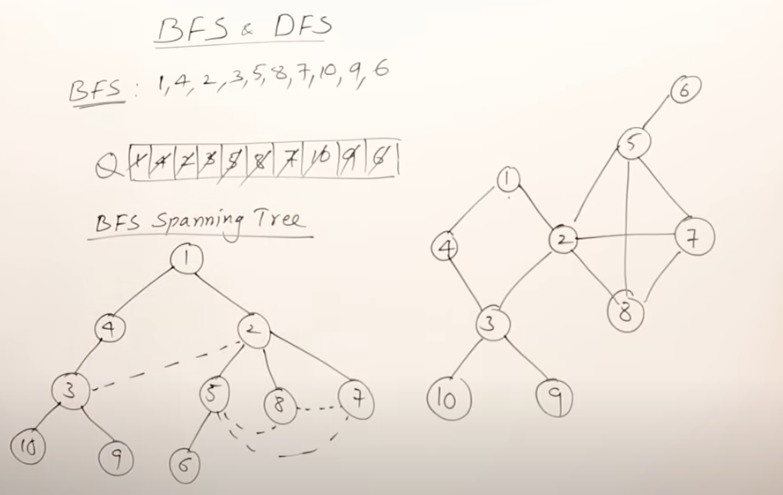 BFS & DFS
BFS : 1,4,2,3,5,8,7,10,9,6
Q 1 4 2 3 5 8 7 10 9 6
BFS Spanning Tree
1
4 2
3 5 8 7
10 9 6
6
5
1
4 2 7
3 8
10 9